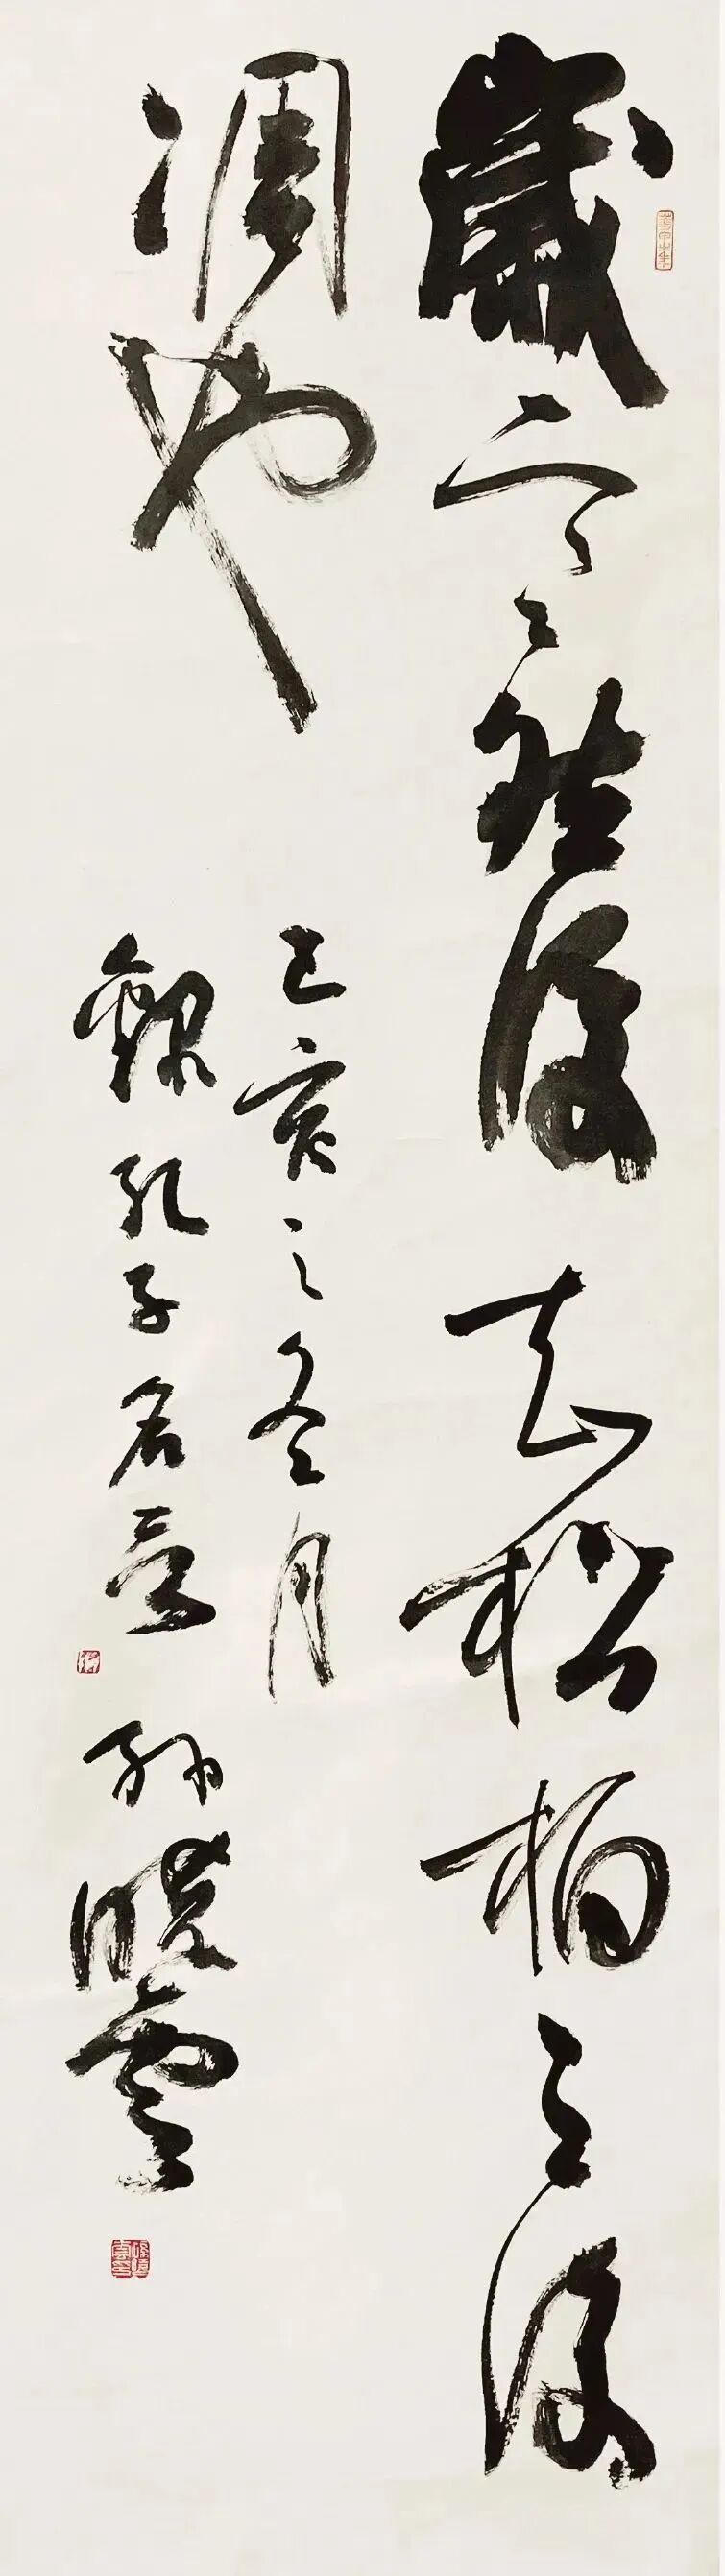 歲寒然後知松柏之後
凋也
己亥之冬月
錄孔子名言 孫曉雲